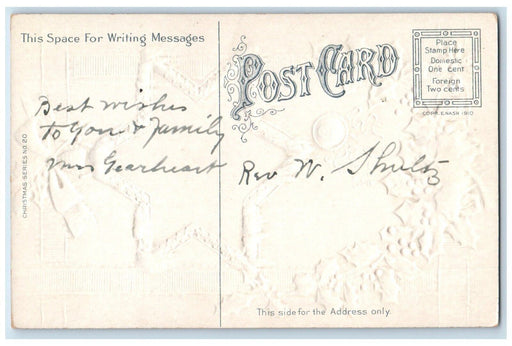 This Space For Writing Messages
POST CARD
Place
Stamp Here
Domestic
One cent
Foreign
Two cents
COPR. E. NASH 1910
Best wishes
to you & family
Mrs Gearheart
Rev W. Shultz
CHRISTMAS SERIES NO. 20
This side for the Address only.